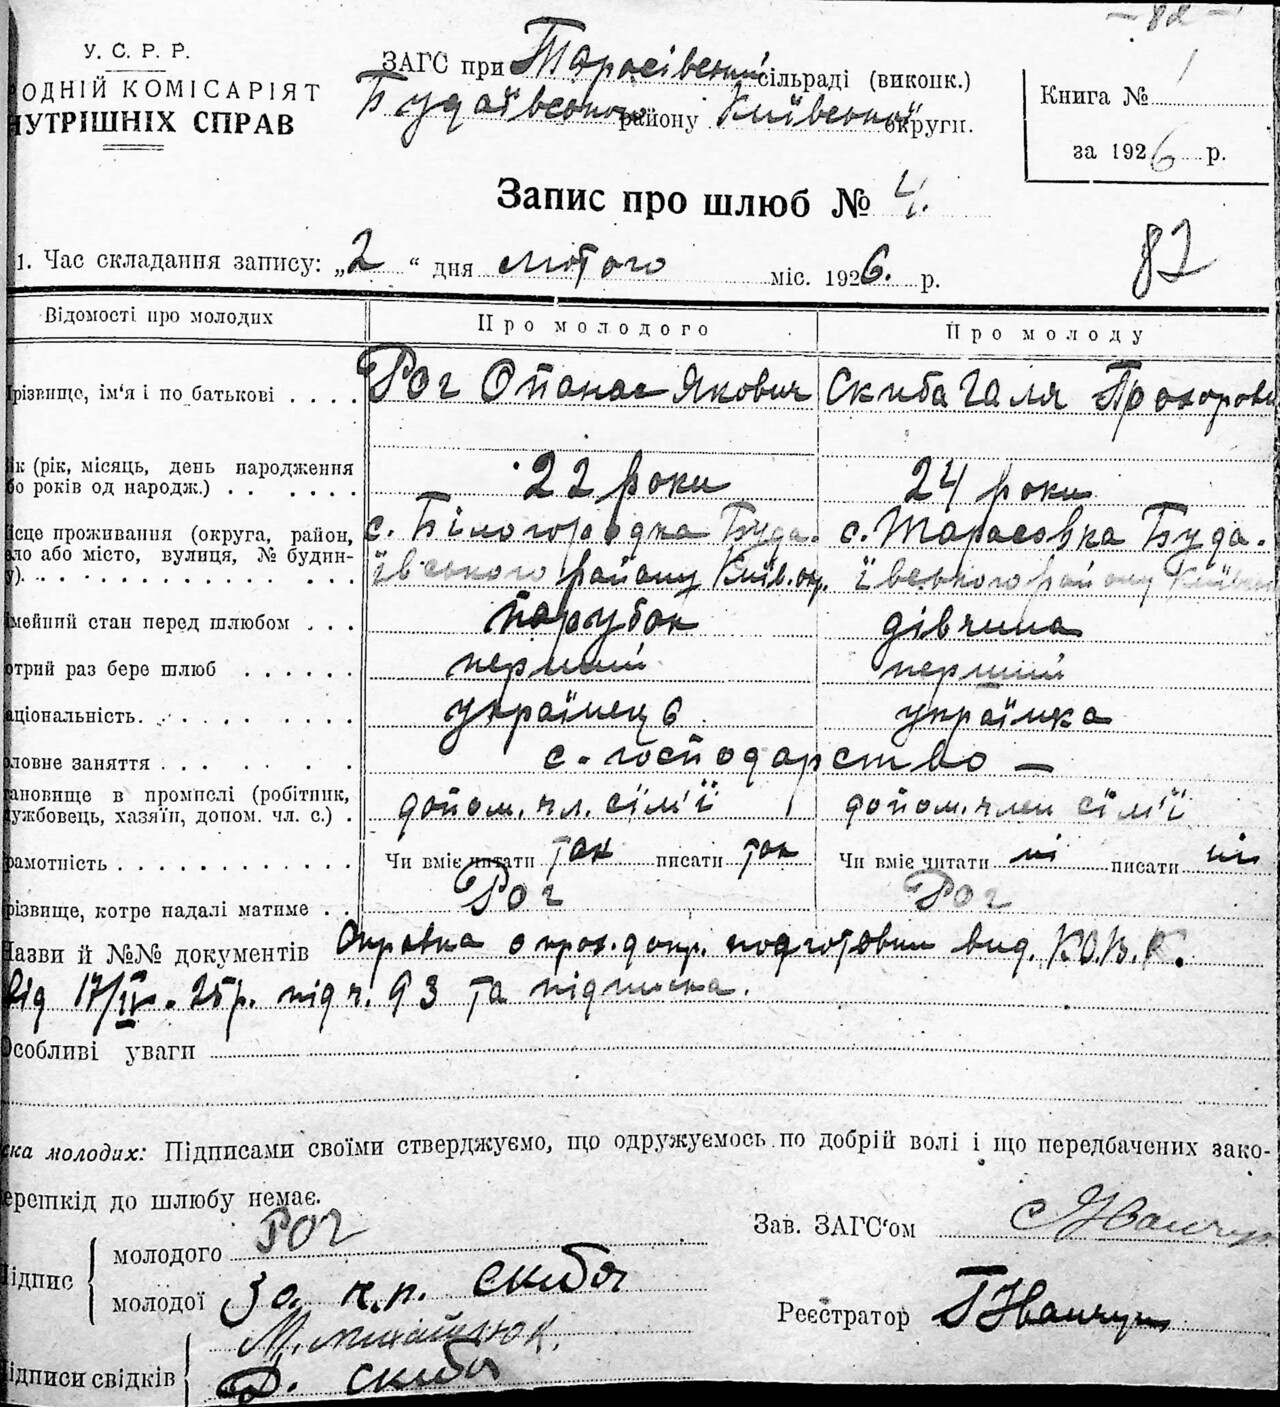 – 82 –
У. С. Р. Р.
ОДНІЙ КОМІСАРІЯТ
НУТРІШНІХ СПРАВ
ЗАГС при Тарасівській сільраді (виконк.)
Будаївського району Київської округи.
Книга № 1
за 1926 р.
Запис про шлюб № 4.
82
1. Час складання запису: „2“ дня лютого міс. 1926. р.
Відомості про молодих Про молодого Про молоду
різвище, ім'я і по батькові . . . . Рог Опанас Якович Скиба Галя Прохоровн
ік (рік, місяць, день народження
бо років од народж.) . . . . . . 22 роки 24 роки
ісце проживання (округа, район, с. Білогородка Буда- с. Тарасовка Буда-
ло або місто, вулиця, № будин- ївського району Київ. окр. ївського району Київсь
у). . . . . . . . . . . . . .
мейний стан перед шлюбом . . . парубок дівчина
отрий раз бере шлюб . . . . . . перший перший
аціональність. . . . . . . . . . українець українка
ловне заняття . . . . . . с. господарство —
ановище в промислі (робітник,
ужбовець, хазяїн, допом. чл. с.) . допом. чл. сїм'ї допом. член сїм'ї
рамотність . . . . . . . . . . . Чи вміє читати так писати так Чи вміє читати ні писати ні
різвище, котре надалі матиме . . Рог Рог
Назви й №№ документів Справка о прох. допр. подготовки вид. К.О.В.К.
від 17/IV. 25р. під ч. 93 та підписка.
Особливі уваги
ска молодих: Підписами своїми стверджуємо, що одружуємось по добрій волі і що передбачених зако-
ерешкід до шлюбу немає.
Зав. ЗАГС'ом
Підпис
молодого Рог
молодої За н.п. Скиба
Реєстратор
ідписи свідків
М. Михайлюк.
Скиба